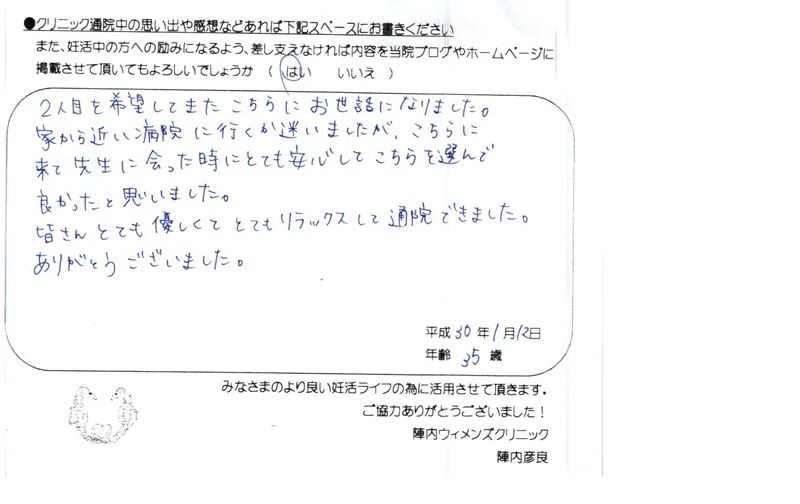 ●クリニック通院中の思い出や感想などあれば下記スペースにお書きください
また、妊活中の方への励みになるよう、差し支えなければ内容を当院ブログやホームページに
掲載させて頂いてもよろしいでしょうか （ はい いいえ ）
2人目を希望してまたこちらにお世話になりました。
家から近い病院に行くか迷いましたが、こちらに
来て先生に会った時にとても安心してこちらを選んで
良かったと思いました。
皆さんとても優しくてとてもリラックスして通院できました。
ありがとうございました。
平成 30 年 1 月 12日
年齢 35 歳
みなさまのより良い妊活ライフの為に活用させて頂きます．
ご協力ありがとうございました！
陣内ウィメンズクリニック
陣内彦良